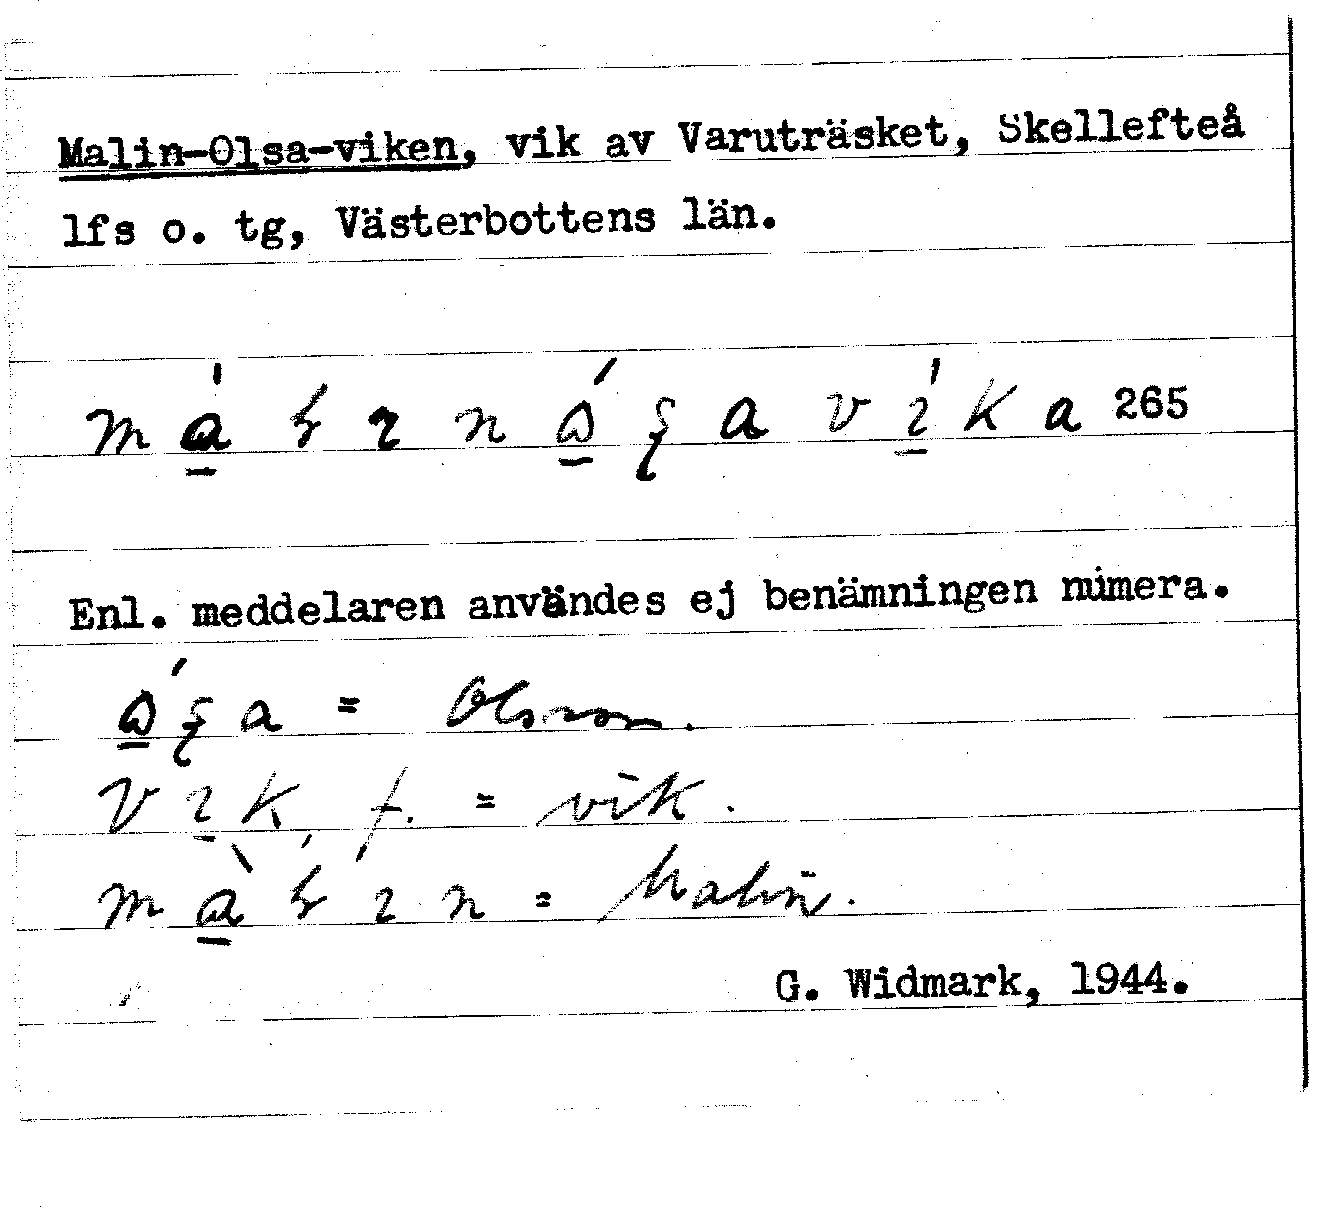 Malin-Olsa-viken, vik av Varuträsket, Skellefteå
lfs o. tg, Västerbottens län.
265
Enl. meddelaren användes ej benämningen numera.
= Olsson.
f. = vik.
= Malin.
G. Widmark, 1944.